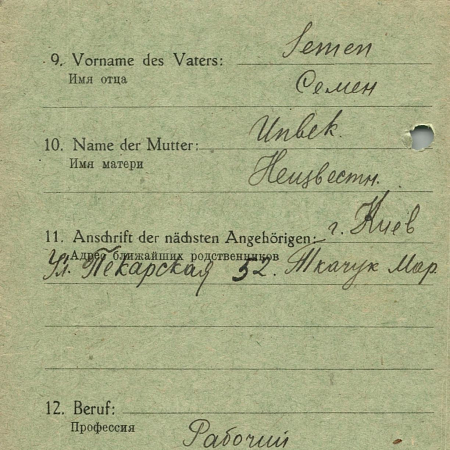 9. Vorname des Vaters: Semen
Имя отца Семен
10. Name der Mutter: Unbek.
Имя матери Неизвестн.
11. Anschrift der nächsten Angehörigen: г. Киев
Адрес ближайших родственников
Ул. Пекарская 52. Ткачук Мар
12. Beruf:
Профессия Рабочий